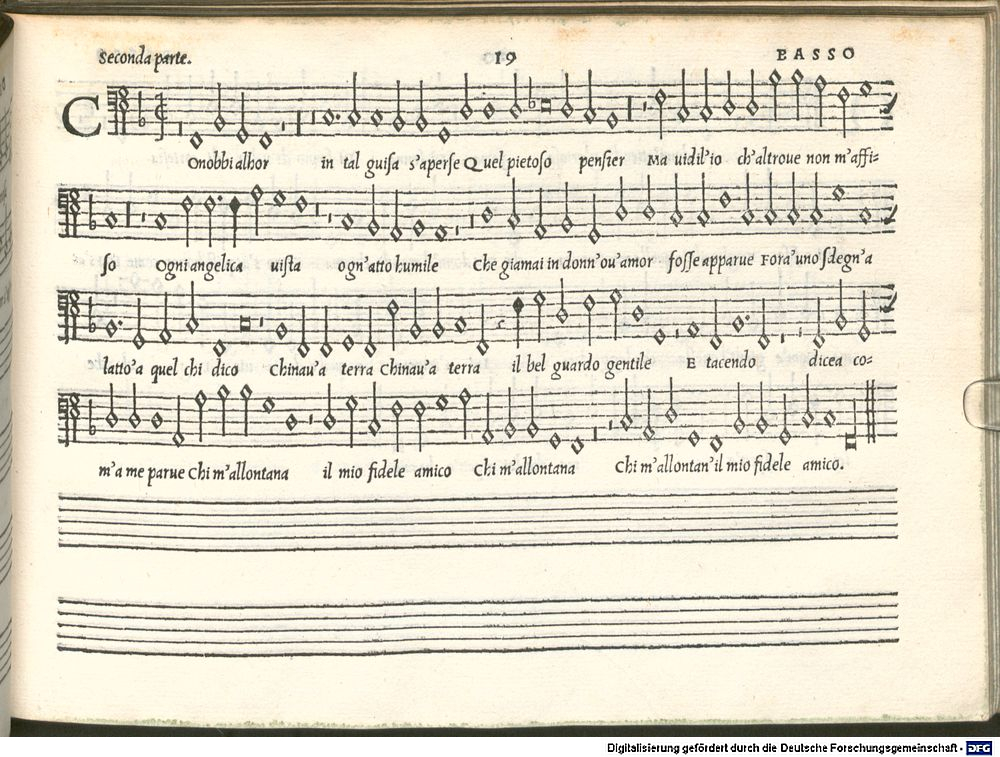 Seconda parte. 19 BASSO
COnobbi alhor in tal guisa s'aperse Quel pietoso pensier Ma uidil'io ch'altroue non m'affi-
so Ogni angelica uista ogn'atto humile Che giamai in donn'ou'amor fosse apparue Fora'uno sdegn'a
latto'a quel chi dico Chinau'a terra Chinau'a terra il bel guardo gentile E tacendo dicea co-
m'a me parue Chi m'allontana il mio fidele amico Chi m'allontana Chi m'allontan'il mio fidele amico.
Digitalisierung gefördert durch die Deutsche Forschungsgemeinschaft - DFG